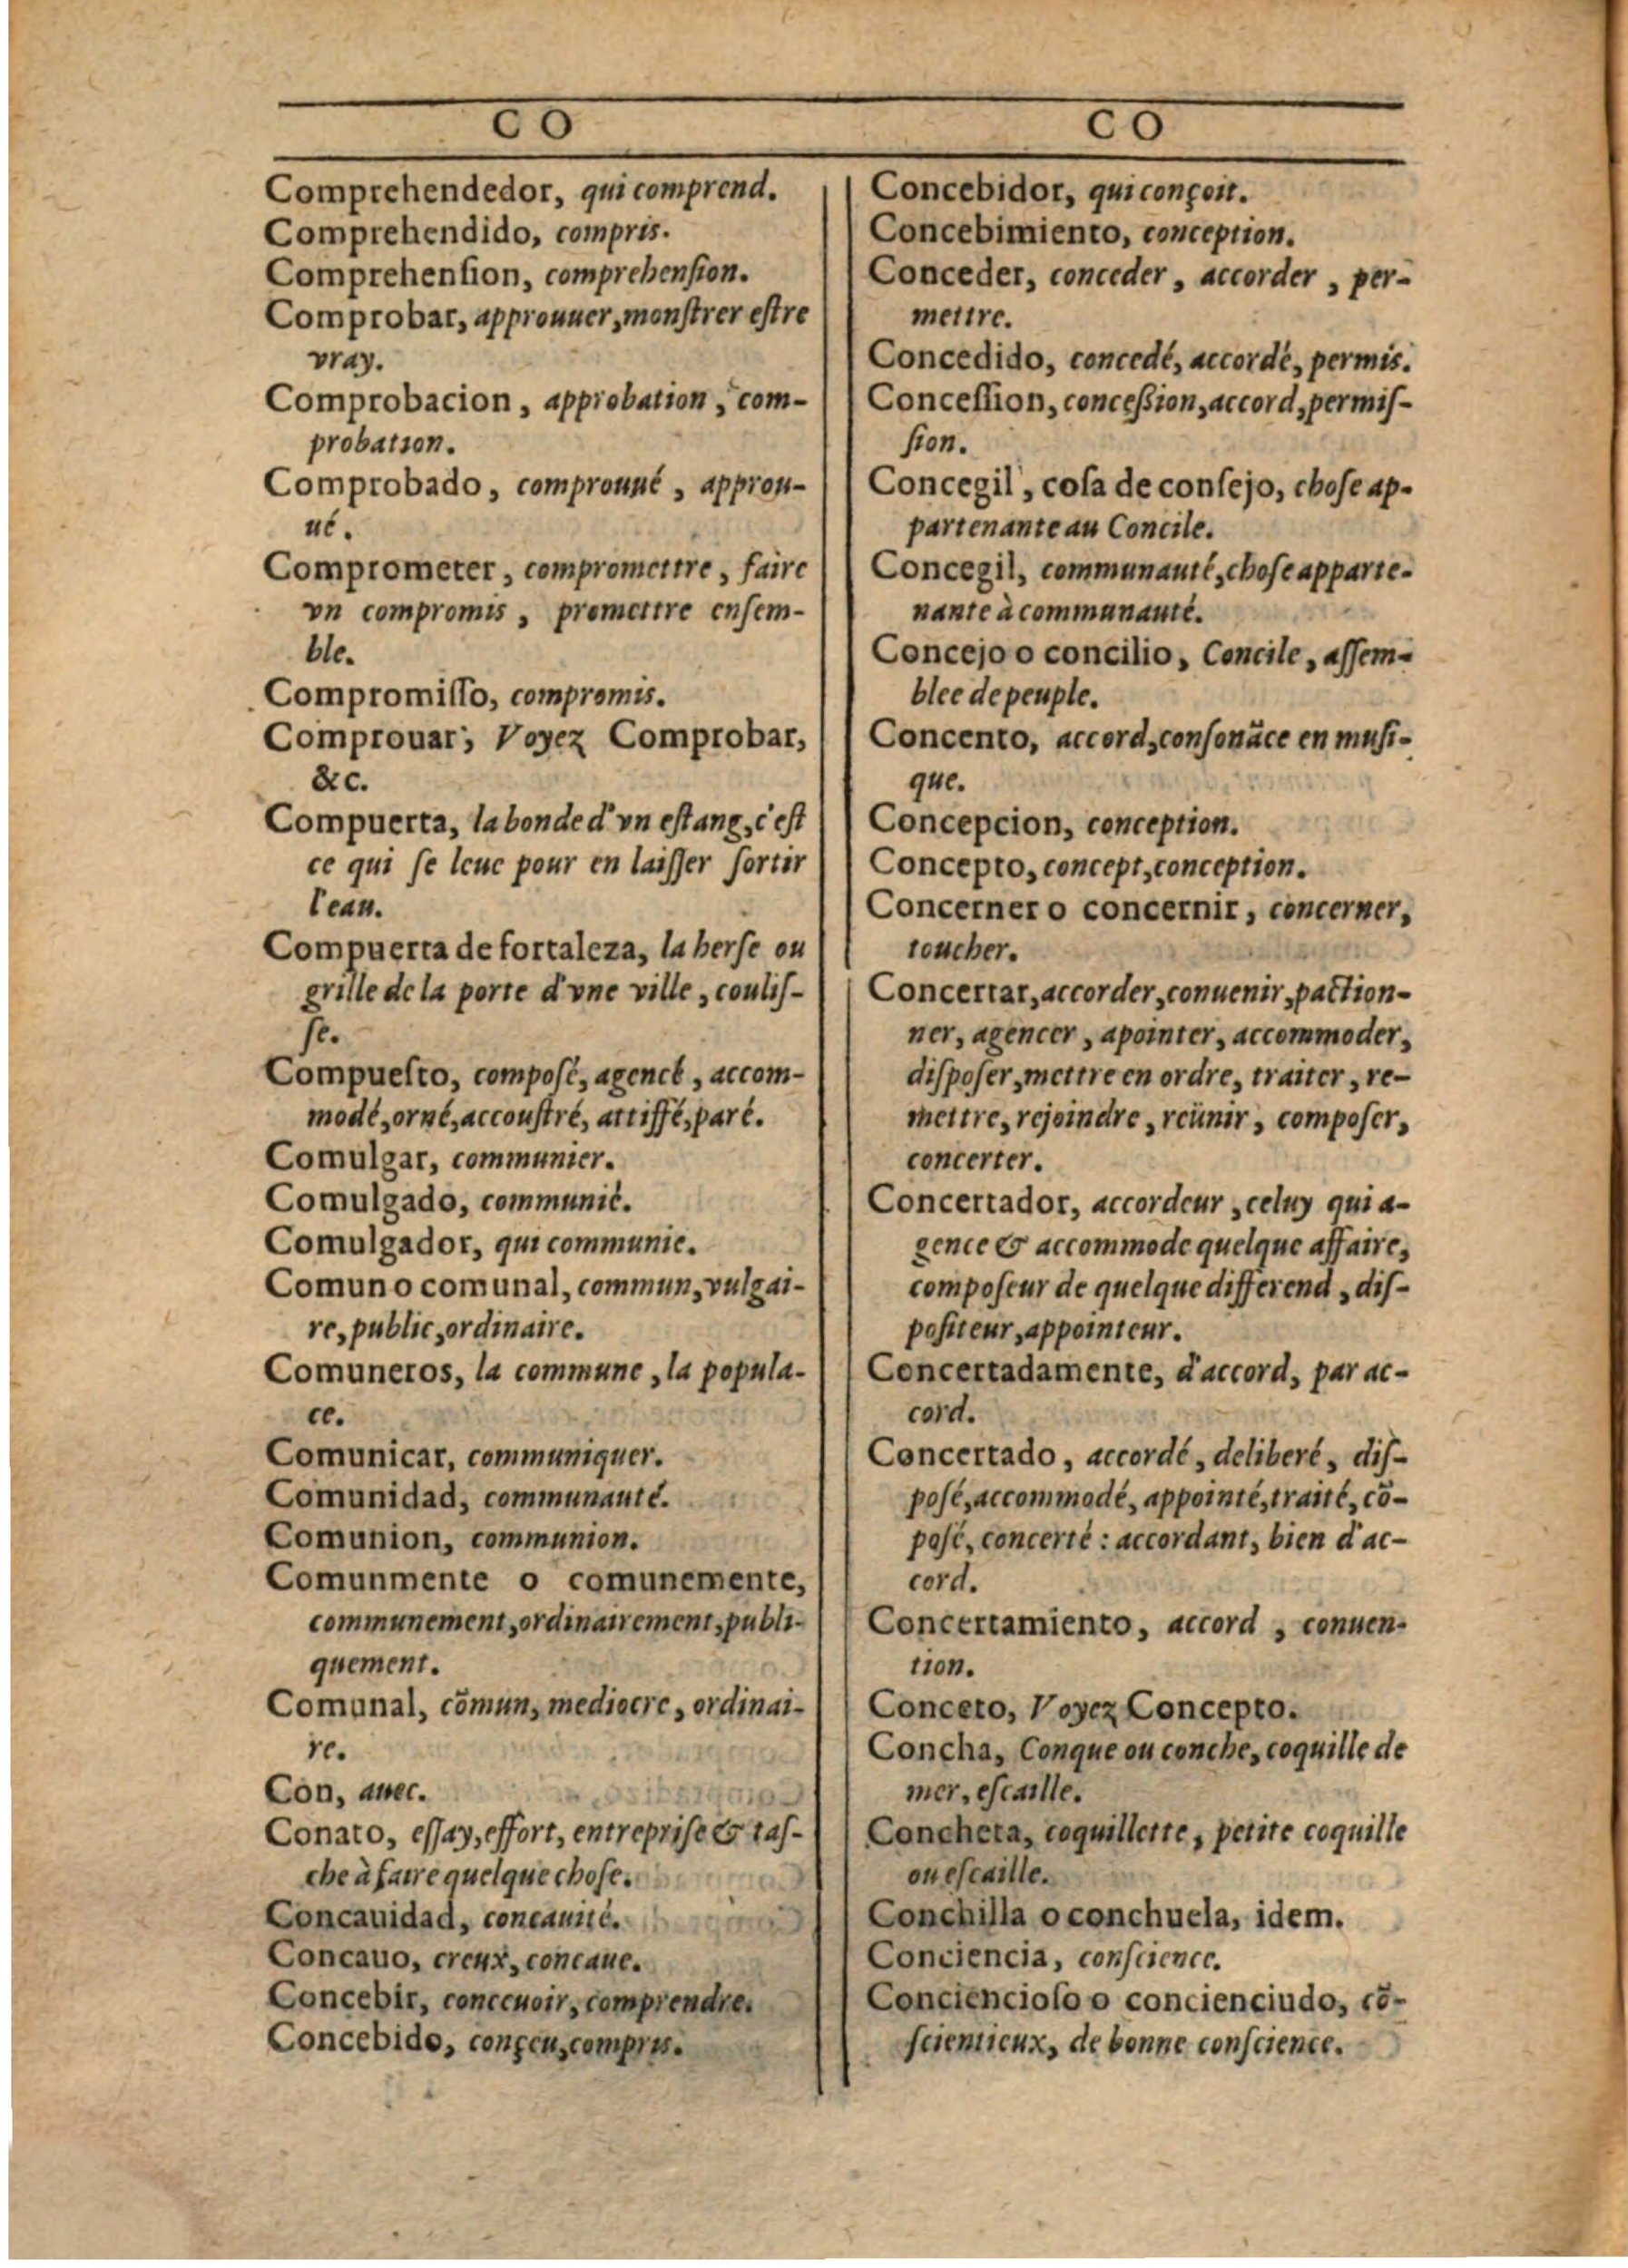 CO
Comprehendedor, qui comprend.
Comprehendido, compris.
Comprehenſion, comprehenſion.
Comprobar, approuuer, monſtrer eſtre
vray.
Comprobacion, approbation, com-
probation.
Comprobado, comprouué, approu-
ué.
Comprometer, compromettre, faire
vn compromis, promettre enſem-
ble.
Compromiſſo, compromis.
Comprouar, Voyez Comprobar,
&c.
Compuerta, la bonde d'vn eſtang, c'eſt
ce qui ſe leue pour en laiſſer ſortir
l'eau.
Compuerta de fortaleza, la herſe ou
grille de la porte d'vne ville, couliſ-
ſe.
Compueſto, compoſé, agencé, accom-
modé, orné, accouſtré, attiffé, paré.
Comulgar, communier.
Comulgado, communié.
Comulgador, qui communie.
Comun o comunal, commun, vulgai-
re, public, ordinaire.
Comuneros, la commune, la popula-
ce.
Comunicar, communiquer.
Comunidad, communauté.
Comunion, communion.
Comunmente o comunemente,
communement, ordinairement, publi-
quement.
Comunal, cõmun, mediocre, ordinai-
re.
Con, auec.
Conato, eſſay, effort, entrepriſe & taſ-
che à faire quelque choſe.
Concauidad, concauité.
Concauo, creux, concaue.
Concebir, conceuoir, comprendre.
Concebido, conçeu, compris.
CO
Concebidor, qui conçoit.
Concebimiento, conception.
Conceder, conceder, accorder, per-
mettre.
Concedido, concedé, accordé, permis.
Conceſſion, conceßion, accord, permiſ-
ſion.
Concegil, coſa de conſejo, choſe ap-
partenante au Concile.
Concegil, communauté, choſe apparte-
nante à communauté.
Concejo o concilio, Concile, aſſem-
blee de peuple.
Concento, accord, conſonãce en muſi-
que.
Concepcion, conception.
Concepto, concept, conception.
Concerner o concernir, concerner,
toucher.
Concertar, accorder, conuenir, paction-
ner, agencer, apointer, accommoder,
diſpoſer, mettre en ordre, traiter, re-
mettre, rejoindre, reünir, compoſer,
concerter.
Concertador, accordeur, celuy qui a-
gence & accommode quelque affaire,
compoſeur de quelque differend, diſ-
poſiteur, appointeur.
Concertadamente, d'accord, par ac-
cord.
Concertado, accordé, deliberé, diſ-
poſé, accommodé, appointé, traité, cõ-
poſé, concerté : accordant, bien d'ac-
cord.
Concertamiento, accord, conuen-
tion.
Conceto, Voyez Concepto.
Concha, Conque ou conche, coquille de
mer, eſcaille.
Concheta, coquillette, petite coquille
ou eſcaille.
Conchilla o conchuela, idem.
Conciencia, conſcience.
Conciencioſo o concienciudo, cõ-
ſcientieux, de bonne conſcience.